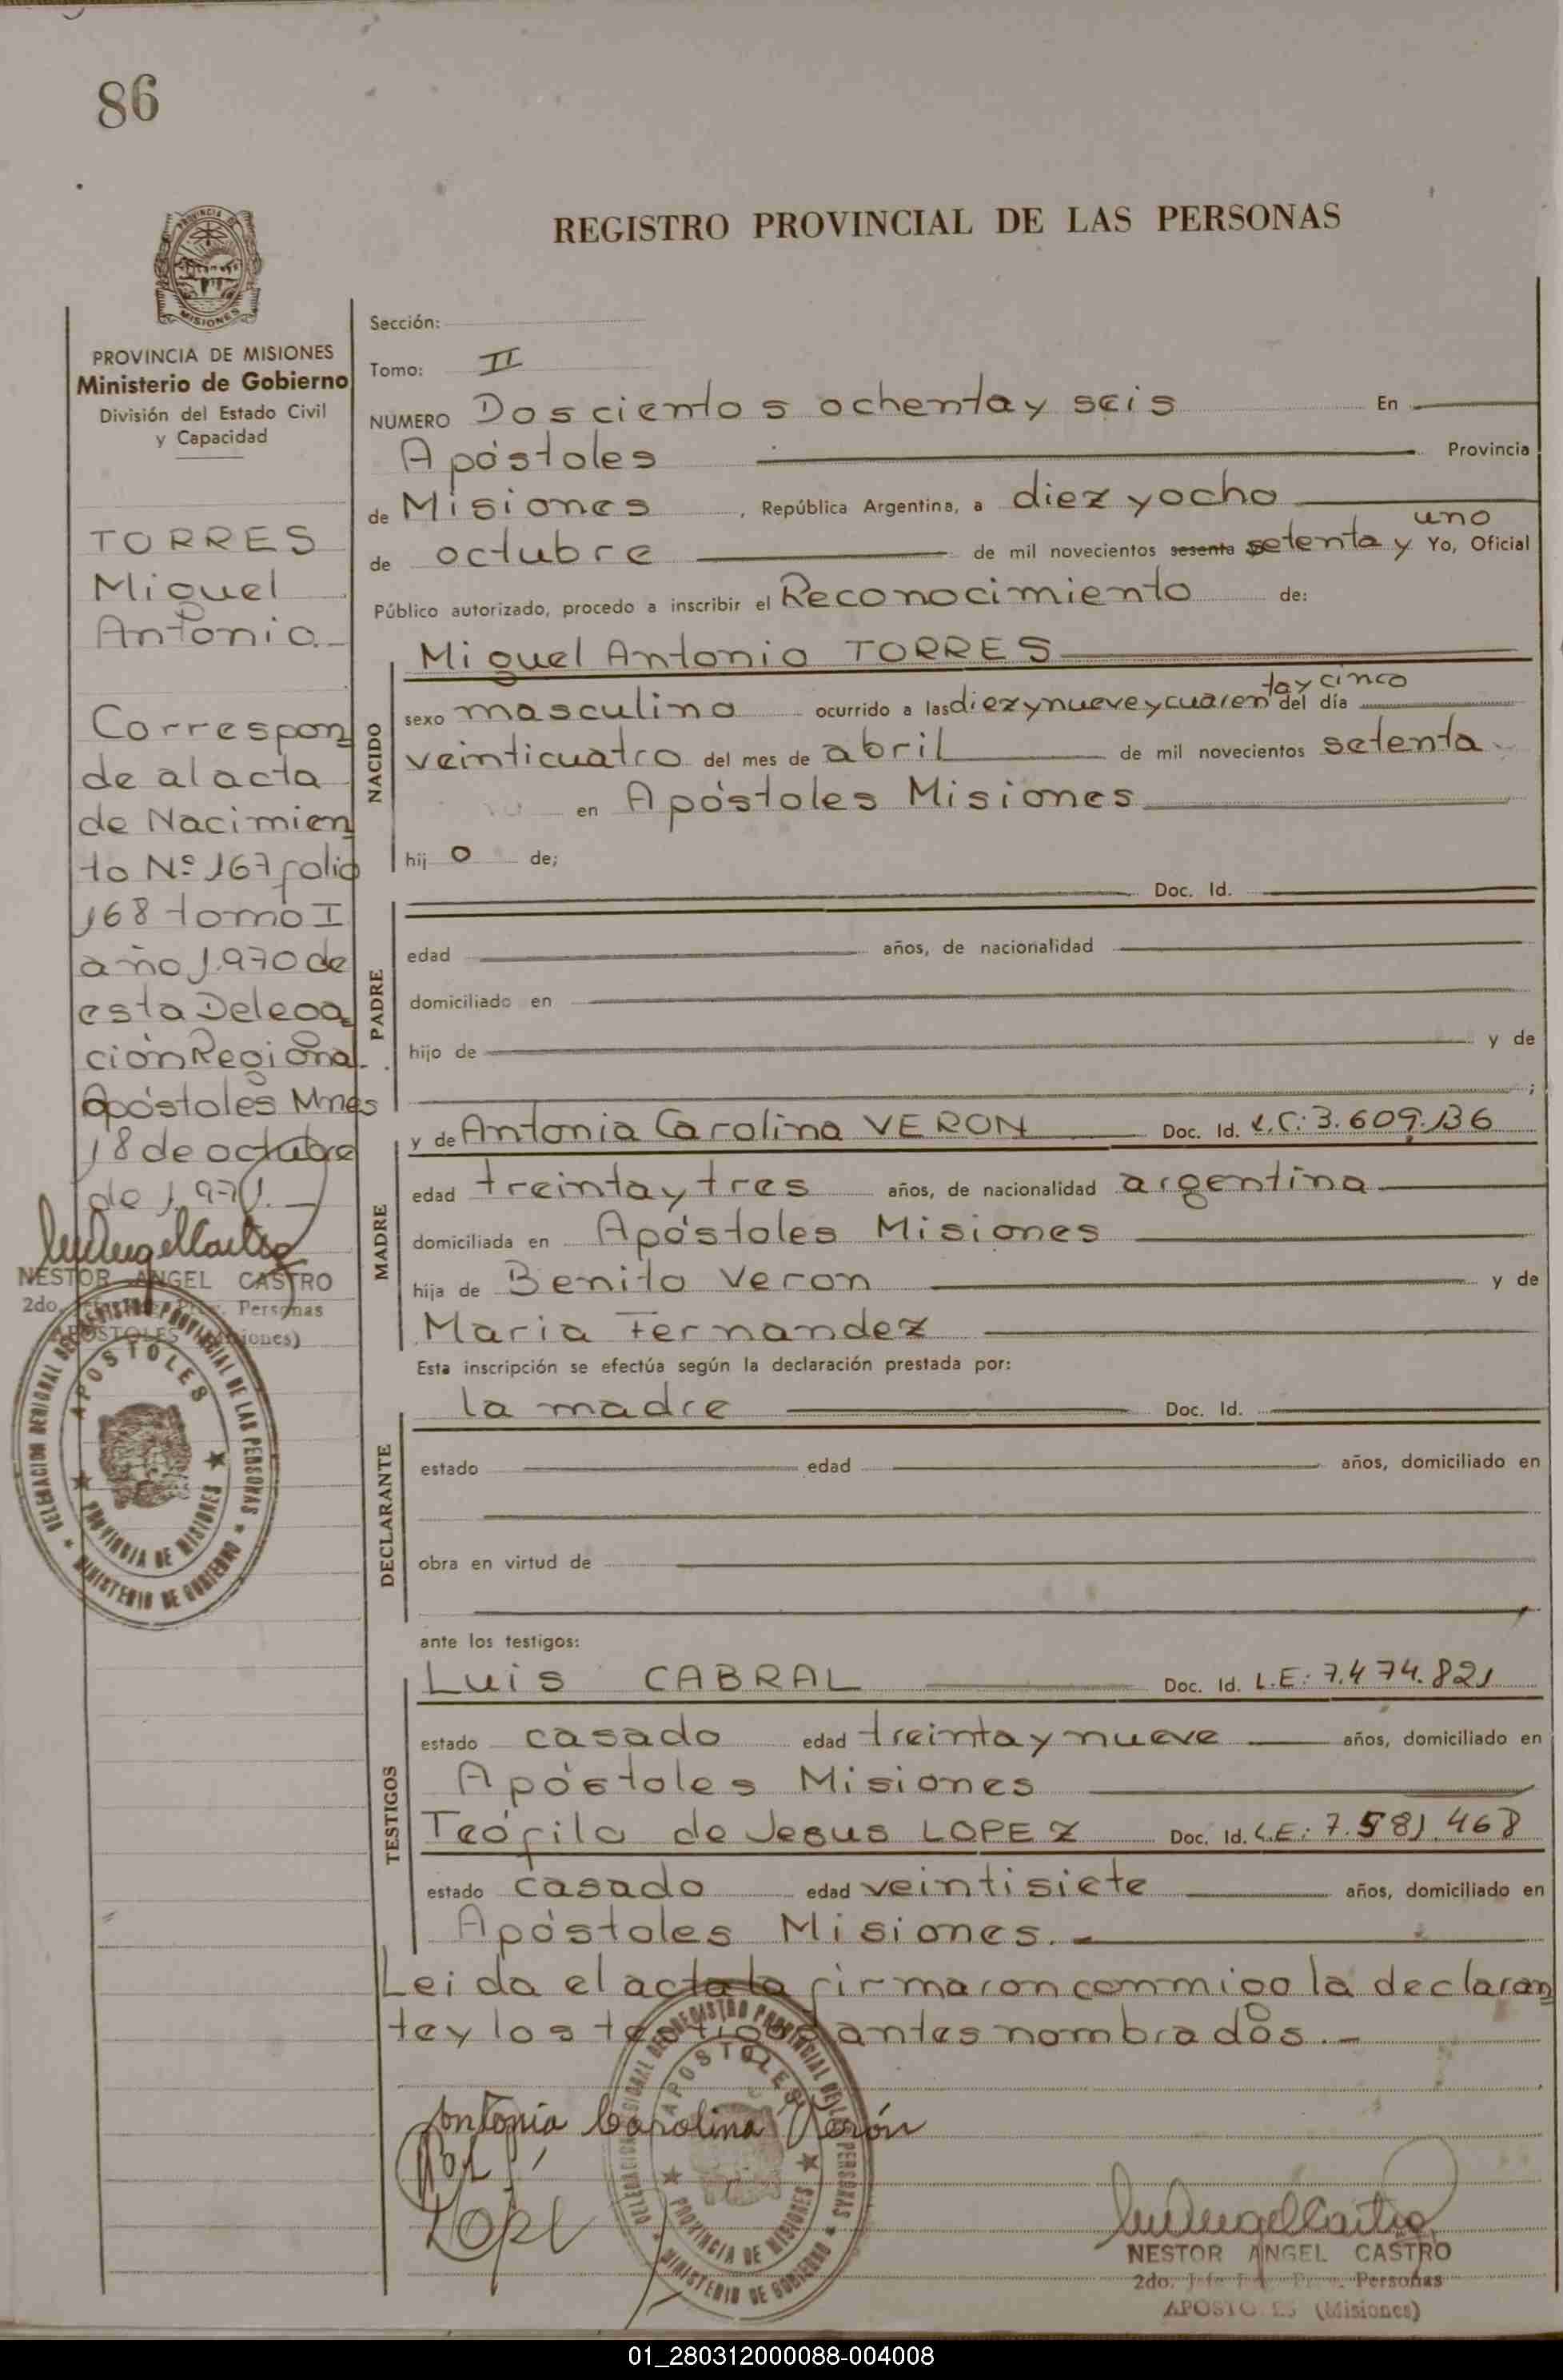 86
REGISTRO PROVINCIAL DE LAS PERSONAS
PROVINCIA DE MISIONES
Ministerio de Gobierno
División del Estado Civil
y Capacidad
TORRES
Miguel
Antonio.-
Correspon
de al acta
de Nacimien
to Nº 167 folio
168 tomo I
año 1.970 de
esta Delega
ción Regional.
Apóstoles Mnes
18 de octubre
de 1.971.-
NESTOR ANGEL CASTRO
2do. Jefe Personas
APOSTOLES (Misiones)
DELEGACION REGIONAL DEL REGISTRO PROVINCIAL DE LAS PERSONAS
APOSTOLES
PROVINCIA DE MISIONES
MINISTERIO DE GOBIERNO
Sección:
Tomo: II
NUMERO Doscientos ochenta y seis En
Apóstoles Provincia
de Misiones, República Argentina, a diez y ocho
uno
de octubre de mil novecientos sesenta setenta y Yo, Oficial
Público autorizado, procedo a inscribir el Reconocimiento de:
NACIDO
Miguel Antonio TORRES
ta y cinco
sexo masculino ocurrido a las diez y nueve y cuaren del día
veinticuatro del mes de abril de mil novecientos setenta
en Apóstoles Misiones
hij o de;
PADRE
Doc. Id.
edad años, de nacionalidad
domiciliado en
hijo de y de
;
MADRE
y de Antonia Carolina VERON Doc. Id. L.C: 3.609.136
edad treinta y tres años, de nacionalidad argentina
domiciliada en Apóstoles Misiones
hija de Benito Veron y de
Maria Fernandez
Esta inscripción se efectúa según la declaración prestada por:
DECLARANTE
la madre Doc. Id.
estado edad años, domiciliado en
obra en virtud de
ante los testigos:
TESTIGOS
Luis CABRAL Doc. Id. L.E: 7.474.821
estado casado edad treinta y nueve años, domiciliado en
Apóstoles Misiones
Teófilo de Jesus LOPEZ Doc. Id. L.E: 7.581.468
estado casado edad veintisiete años, domiciliado en
Apóstoles Misiones.-
Leida el acta la firmaron conmigo la declaran
te y los testigos antes nombrados.-
DELEGACION REGIONAL DEL REGISTRO PROVINCIAL DE LAS PERSONAS
APOSTOLES
PROVINCIA DE MISIONES
MINISTERIO DE GOBIERNO
Antonia Carolina Verón
NESTOR ANGEL CASTRO
2do. Jefe Personas
APOSTOLES (Misiones)
01_280312000088-004008